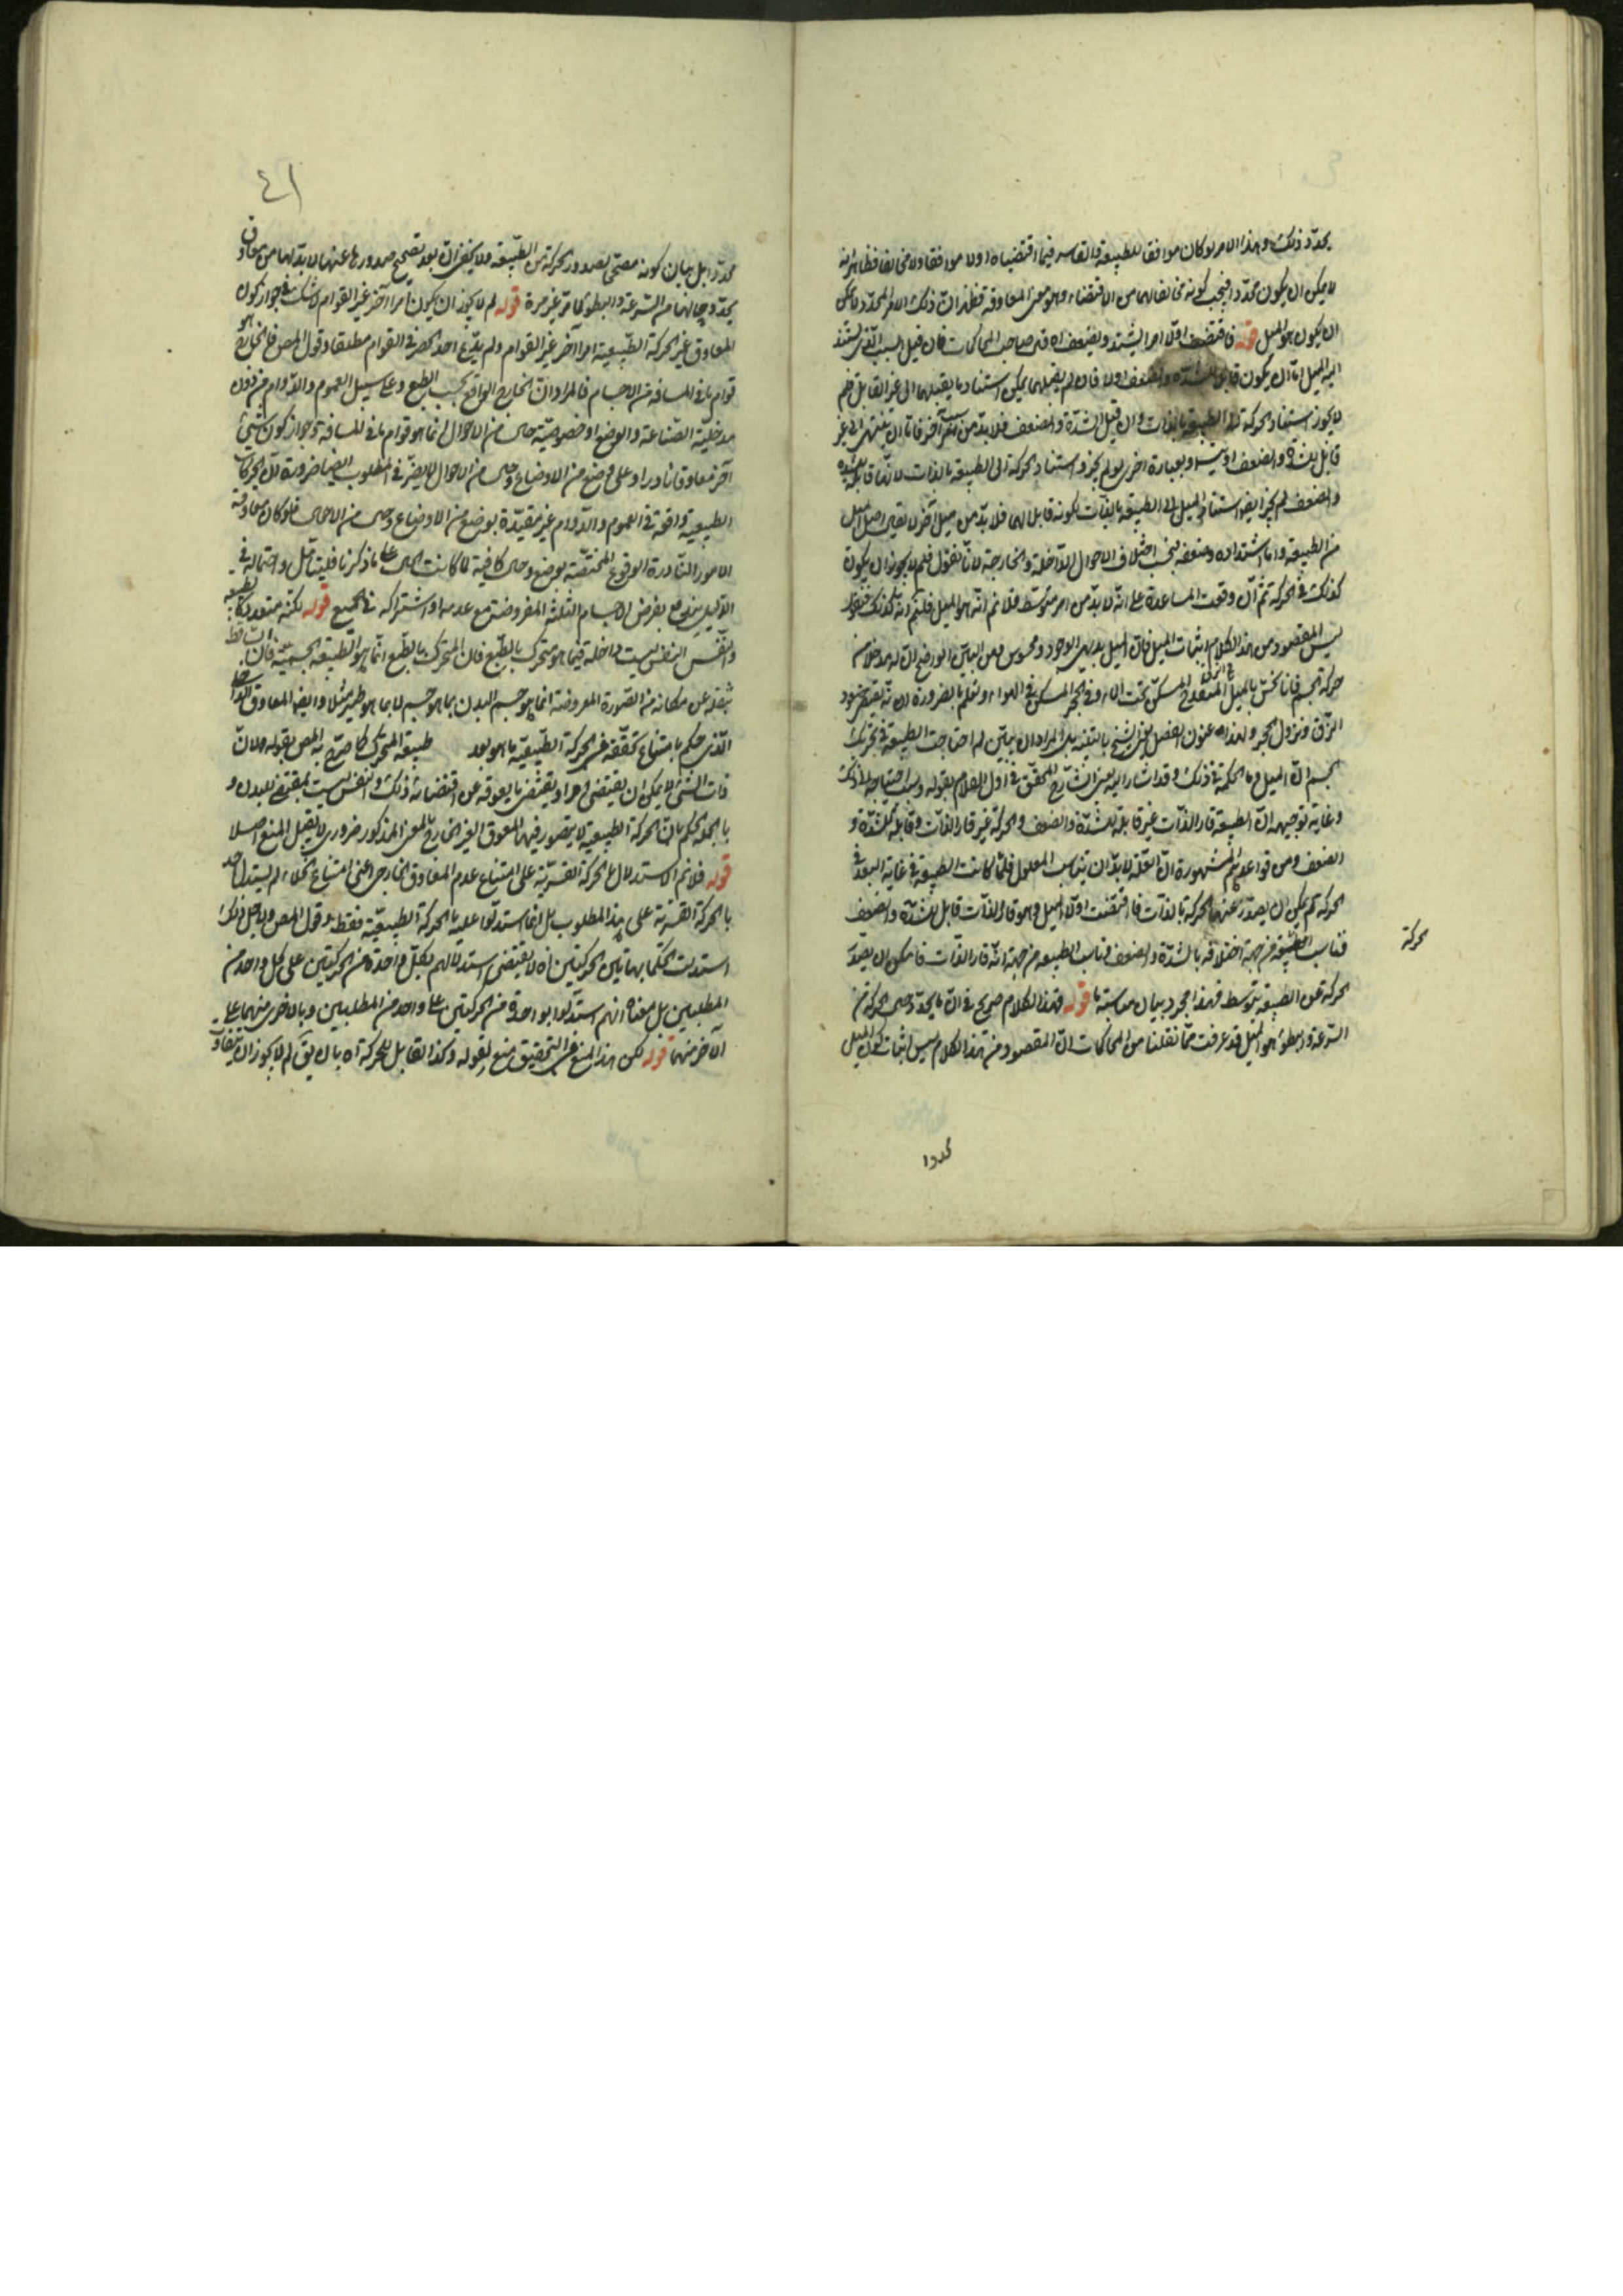 يحدّد ذلك وهذا الامر لو كان موافقا للطبيعة والقاسر فيما اقتضياه اولا موافقا ولا مخالفا فظاهر انه
لا يمكن ان يكون محدّدا فيجب كونه مخالفا لهما من الاقتضاء وهو معنى المعاوقة فظهر انّ ذلك الامر المحدّد لا يمكن
ان يكون هو الميل قوله فاقتضت اوّلا امرا يشتد ويضعف اه قال صاحب المحاكمات فان قيل السبب الذى يستند
اليه الميل امّا ان يكون قابلا للشدّة والضعف اولا فان لم يقبلهما يمكن استناد ما يقبلهما الى غير القابل فلم
لا يجوز استناد الحركة الى الطبيعة بالذات وان قبل الشدّة والضعف فلا بدّ من سبب آخر فامّا ان ينتهى الى غير
قابل للشدّة والضعف او يتسلسل وبعبارة اخرى لو لم يجز استناد الحركة الى الطبيعة بالذات لانّها قابلة للشدّة
والضعف لم يجز ايضا استناد الميل الى الطبيعة بالذات لكونه قابلا لهما فلا بدّ من ميل آخر لا يقال اصل الميل
من الطبيعة وامّا اشتداده وضعفه فبحسب اختلاف الاحوال الداخلة والخارجة لانّا نقول فلم لا يجوز ان يكون
كذلك فى الحركة ثم انّ وقعت المساعدة على انّه لا بدّ من امر متوسّط فلا نم انّه هو الميل فلم قلتم انّه كذلك فنقول
ليس المقصود من هذا الكلام اثبات الميل فانّ الميل بديهى الوجود ومحسوس ومن البيّن الواضح انّ له مدخلا فى
حركة الجسم فانا نحسّ بالميل فى الزقّ المنفوخ المسكّن تحت الماء وفى الحجر المسكّن فى الهواء ونعلم بالضرورة انه يقتضى صعود
الزّق ونزول الحجر ولهذا عنون الفصل الشيخ بالتنبيه بل المراد ان يبيّن لم احتاجت الطبيعة فى تحريك
الجسم الى الميل وما الحكمة فى ذلك وقد اشار اليه الشارح المحقّق فى اوّل الكلام بقوله وسبب احتياجه الى ذلك
وغاية توجيهه انّ الطبيعة قارّ الذّات غير قابلة للشدّة والضعف والحركة غير قارّ الذّات وقابلة للشدّة و
الضعف ومن قواعدهم المشهورة انّ العلّة لا بدّ ان يناسب المعلول فلمّا كانت الطبيعة فى غاية البعد عن
الحركة لم يمكن ان يصدر عنها الحركة بالذّات فاقتضت اوّلا الميل وهو قارّ الذّات قابل للشدّة والضعف
فناسب الحركة من جهة اختلافه بالشدّة والضعف وناسب الطبيعة من جهة انّه قارّ الذّات فامكن ان يصدر
الحركة عن الطبيعة بتوسّطه فهذا مجرد بيان مناسبة ما قوله فهذا الكلام صريح فى انّ ما يحدّد حال الحركة من
السرعة والبطؤ هو الميل قد عرفت ممّا نقلنا من المحاكمات انّ المقصود من هذا الكلام ليس اثبات كون الميل
حركة
محددا
٤١
محدّدا بل بيان كونه مصحّحا لصدور الحركة من الطّبيعة ولا يخفى انّه بعد تصحيح صدورها عنها لا بدّ لها من معاوق
يحدّد حالها من السّرعة والبطؤ كما مرّ غير مرة قوله لم لا يجوز ان يكون امرا آخر غير القوام لا شك فى جواز كون
المعاوق غير الحركة الطّبيعية امرا آخر غير القوام ولم يدّع احد الحصر فى القوام مطلقا وقول المص فالخارج هو
قوام ما فى المسافة من الاجسام فالمراد انّ الخارج الواقع بحسب الطبع وعلى سبيل العموم والدّوام من دون
مدخليّة الصّناعة والوضع او خصوصيّة حال من الاحوال انما هو قوام ما فى المسافة وجواز كون شئ
آخر معاوقا نادرا وعلى وضع من الاوضاع وحال من الاحوال لا يضرّ فى المطلوب ايضا ضرورة انّ الحركات
الطبيعية واقعة فى العموم والدّوام غير مقيّدة بوضع من الاوضاع وحال من الاحوال فلو كان معاوقة
الامور النّادرة الوقوع المختصّة بوضع وحال كافية لما كانت الحال على ما ذكرنا فليتأمّل واحتماله فى
الدّليل يندفع بفرض الاجسام الثلثة المفروضة مع عدمه او اشتراكه فى الجميع قوله لكنّه متعدد كالطبيعة
والنّفس النفس ليست داخلة فيما هو متحرك بالطّبع فان المتحرك بالطّبع انّما هو الطّبيعة الجسميّة فان الساقط
بثقله عن مكانه من الصّورة المفروضة انما هو جسم البدن بما هو جسم لا بما هو طير مثلا وايضا المعاوق الداخل
الّذى حكم بامتناع تحقّقه فى الحركة الطّبيعية ما هو بعد طبيعة المتحرك كما صرّح به المص بقوله لانّ
ذات الشئ لا يمكن ان يقتضى امرا ويقتضى ما يعوقه عن اقتضائه ذلك والنفس ليست بمقتضى للبدن و
بالجملة الحكم بانّ الحركة الطبيعية لا يتصور فيها المعوق الغير الخارج بالمعنى المذكور ضرورى لا يقبل المنع اصلا
قوله فلا نم الاستدلال بالحركة القسريّة على امتناع عدم المعاوق الخارجى اعنى امتناع الخلاء لم يستدل احد
بالحركة القسريّة على هذا المطلوب بل انما استدلّوا عليه بالحركة الطّبيعيّة فقط وقول المص ولاجل ذلك
استدلّت الحكما بهاتين الحركتين اه لا يقتضى استدلالهم بكلّ واحدة من الحركتين على كل واحد من
المطلبين بل معناه انهم استدلّوا بواحدة من الحركتين على واحد من المطلبين وبالاخرى منهما على
الآخر منهما قوله لكن هذا المنع فى التحقيق منع لقوله وكذا القابل للحركة اه بان يق لم لا يجوز ان يتفاوت